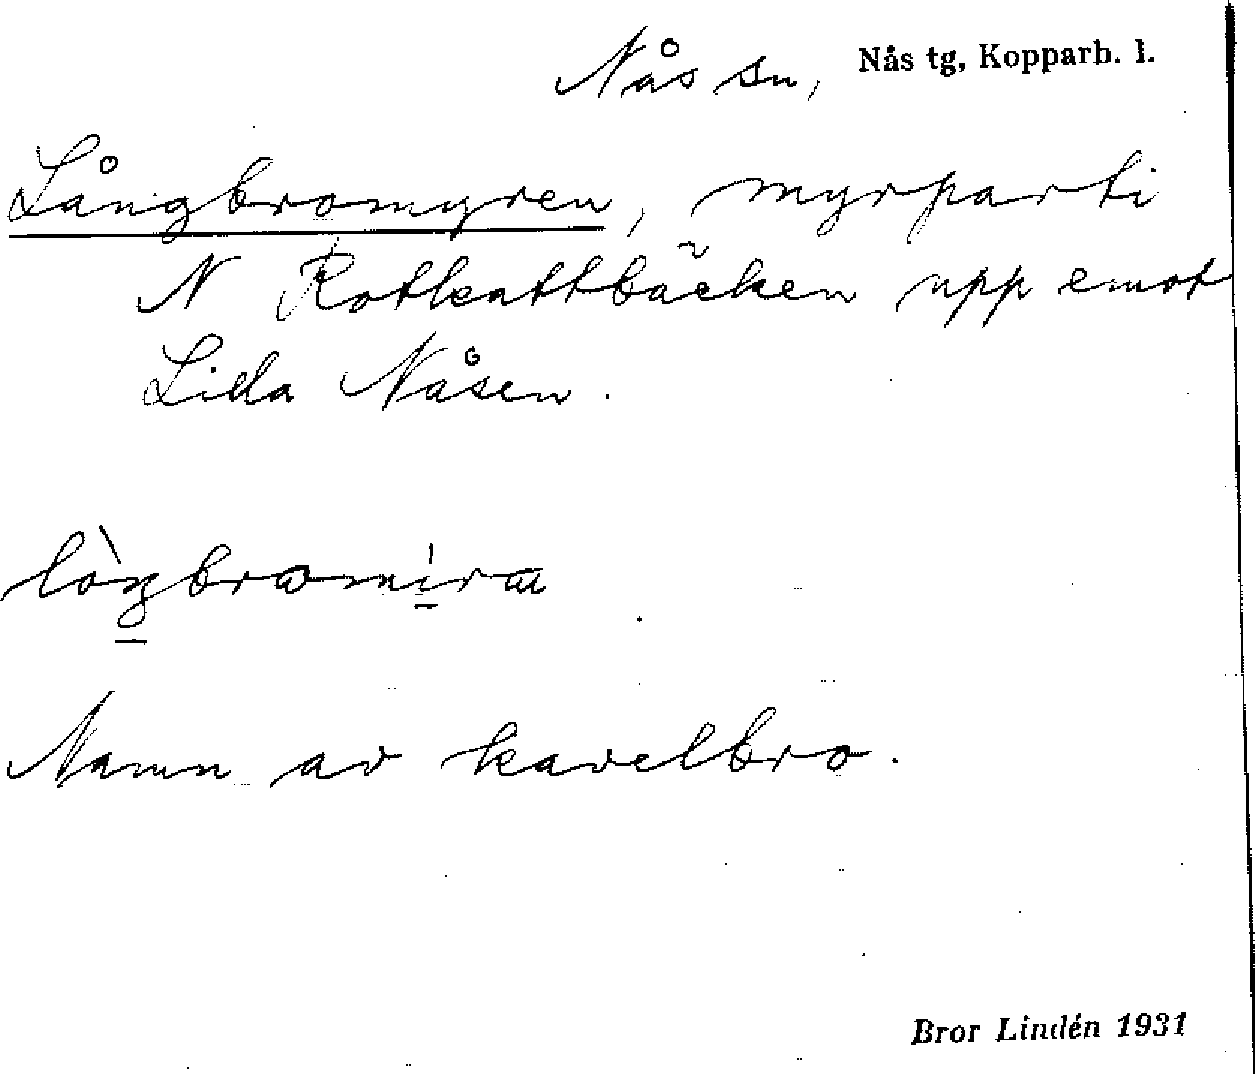 Nås sn, Nås tg, Kopparb. l.
Långbromyren, myrparti
N Rotkattbäcken upp emot
Lida Nåsen.
Namn av kavelbro.
Bror Lindén 1931